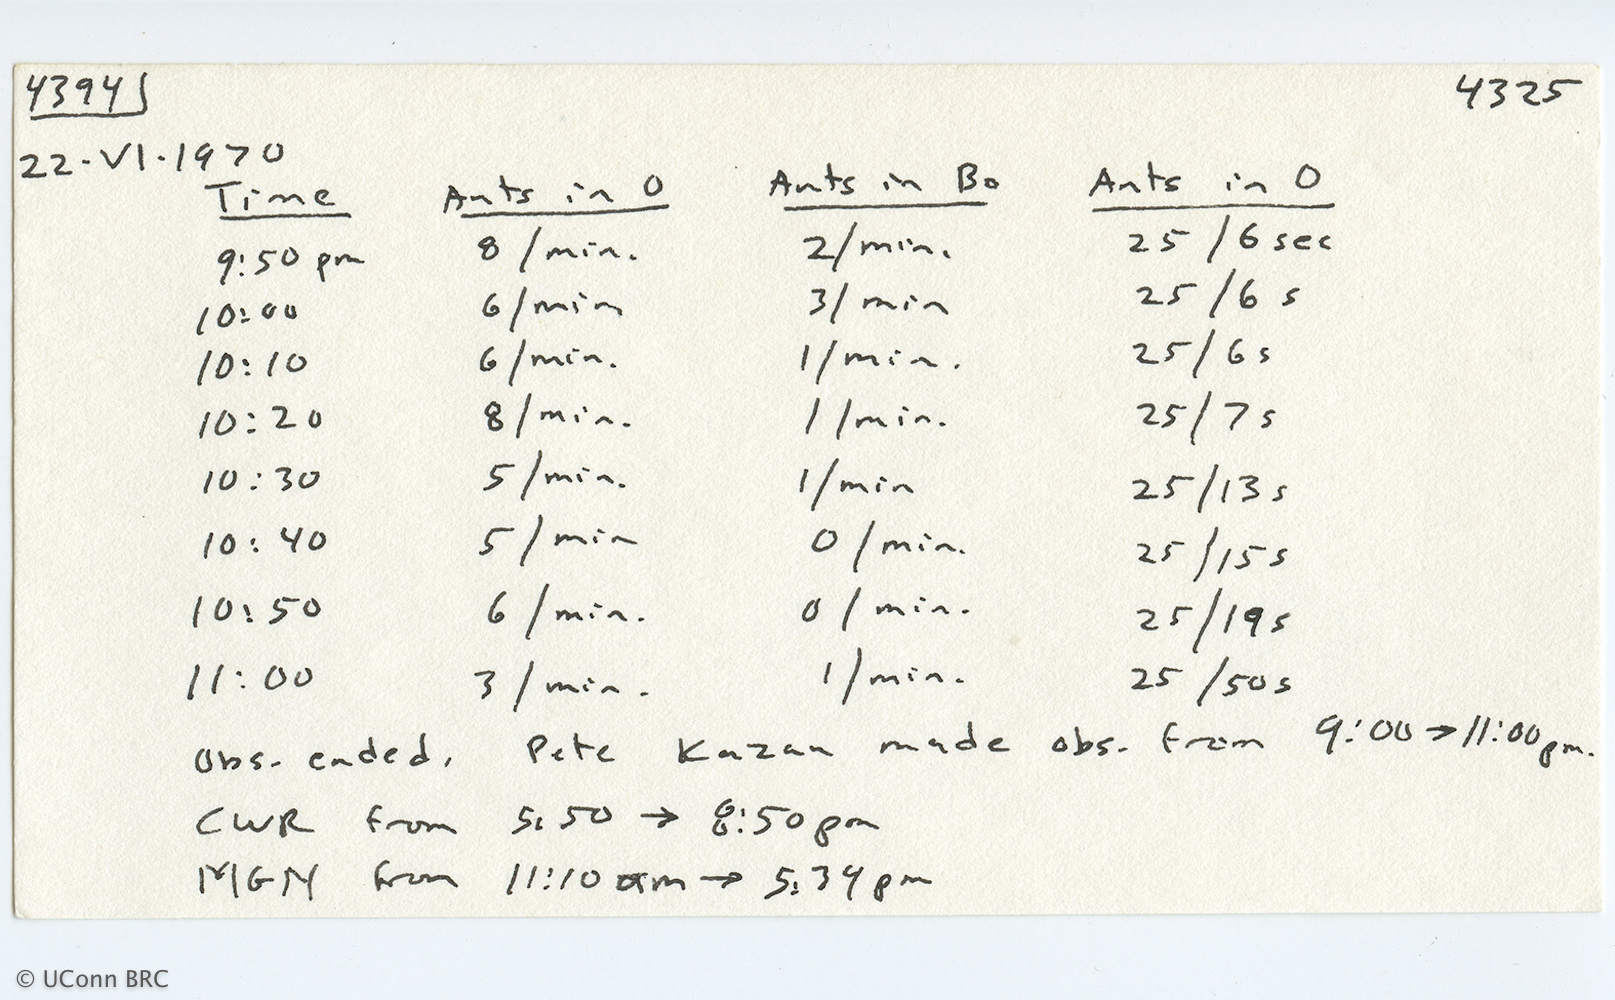 4394 4325
22-VI-1970
Time Ants in O Ants in Bo Ants in O
9:50 pm 8/min. 2/min. 25/6 sec
10:00 6/min 3/min 25/6 s
10:10 6/min. 1/min. 25/6s
10:20 8/min. 1/min. 25/7s
10:30 5/min. 1/min 25/13s
10:40 5/min 0/min. 25/15s
10:50 6/min. 0/min. 25/19s
11:00 3/min. 1/min. 25/50s
Obs. ended. Pete Kazan made obs. from 9:00→11:00pm.
CWR from 5:50 → 8:50pm
MGN from 11:10am → 5:34pm
© UConn BRC